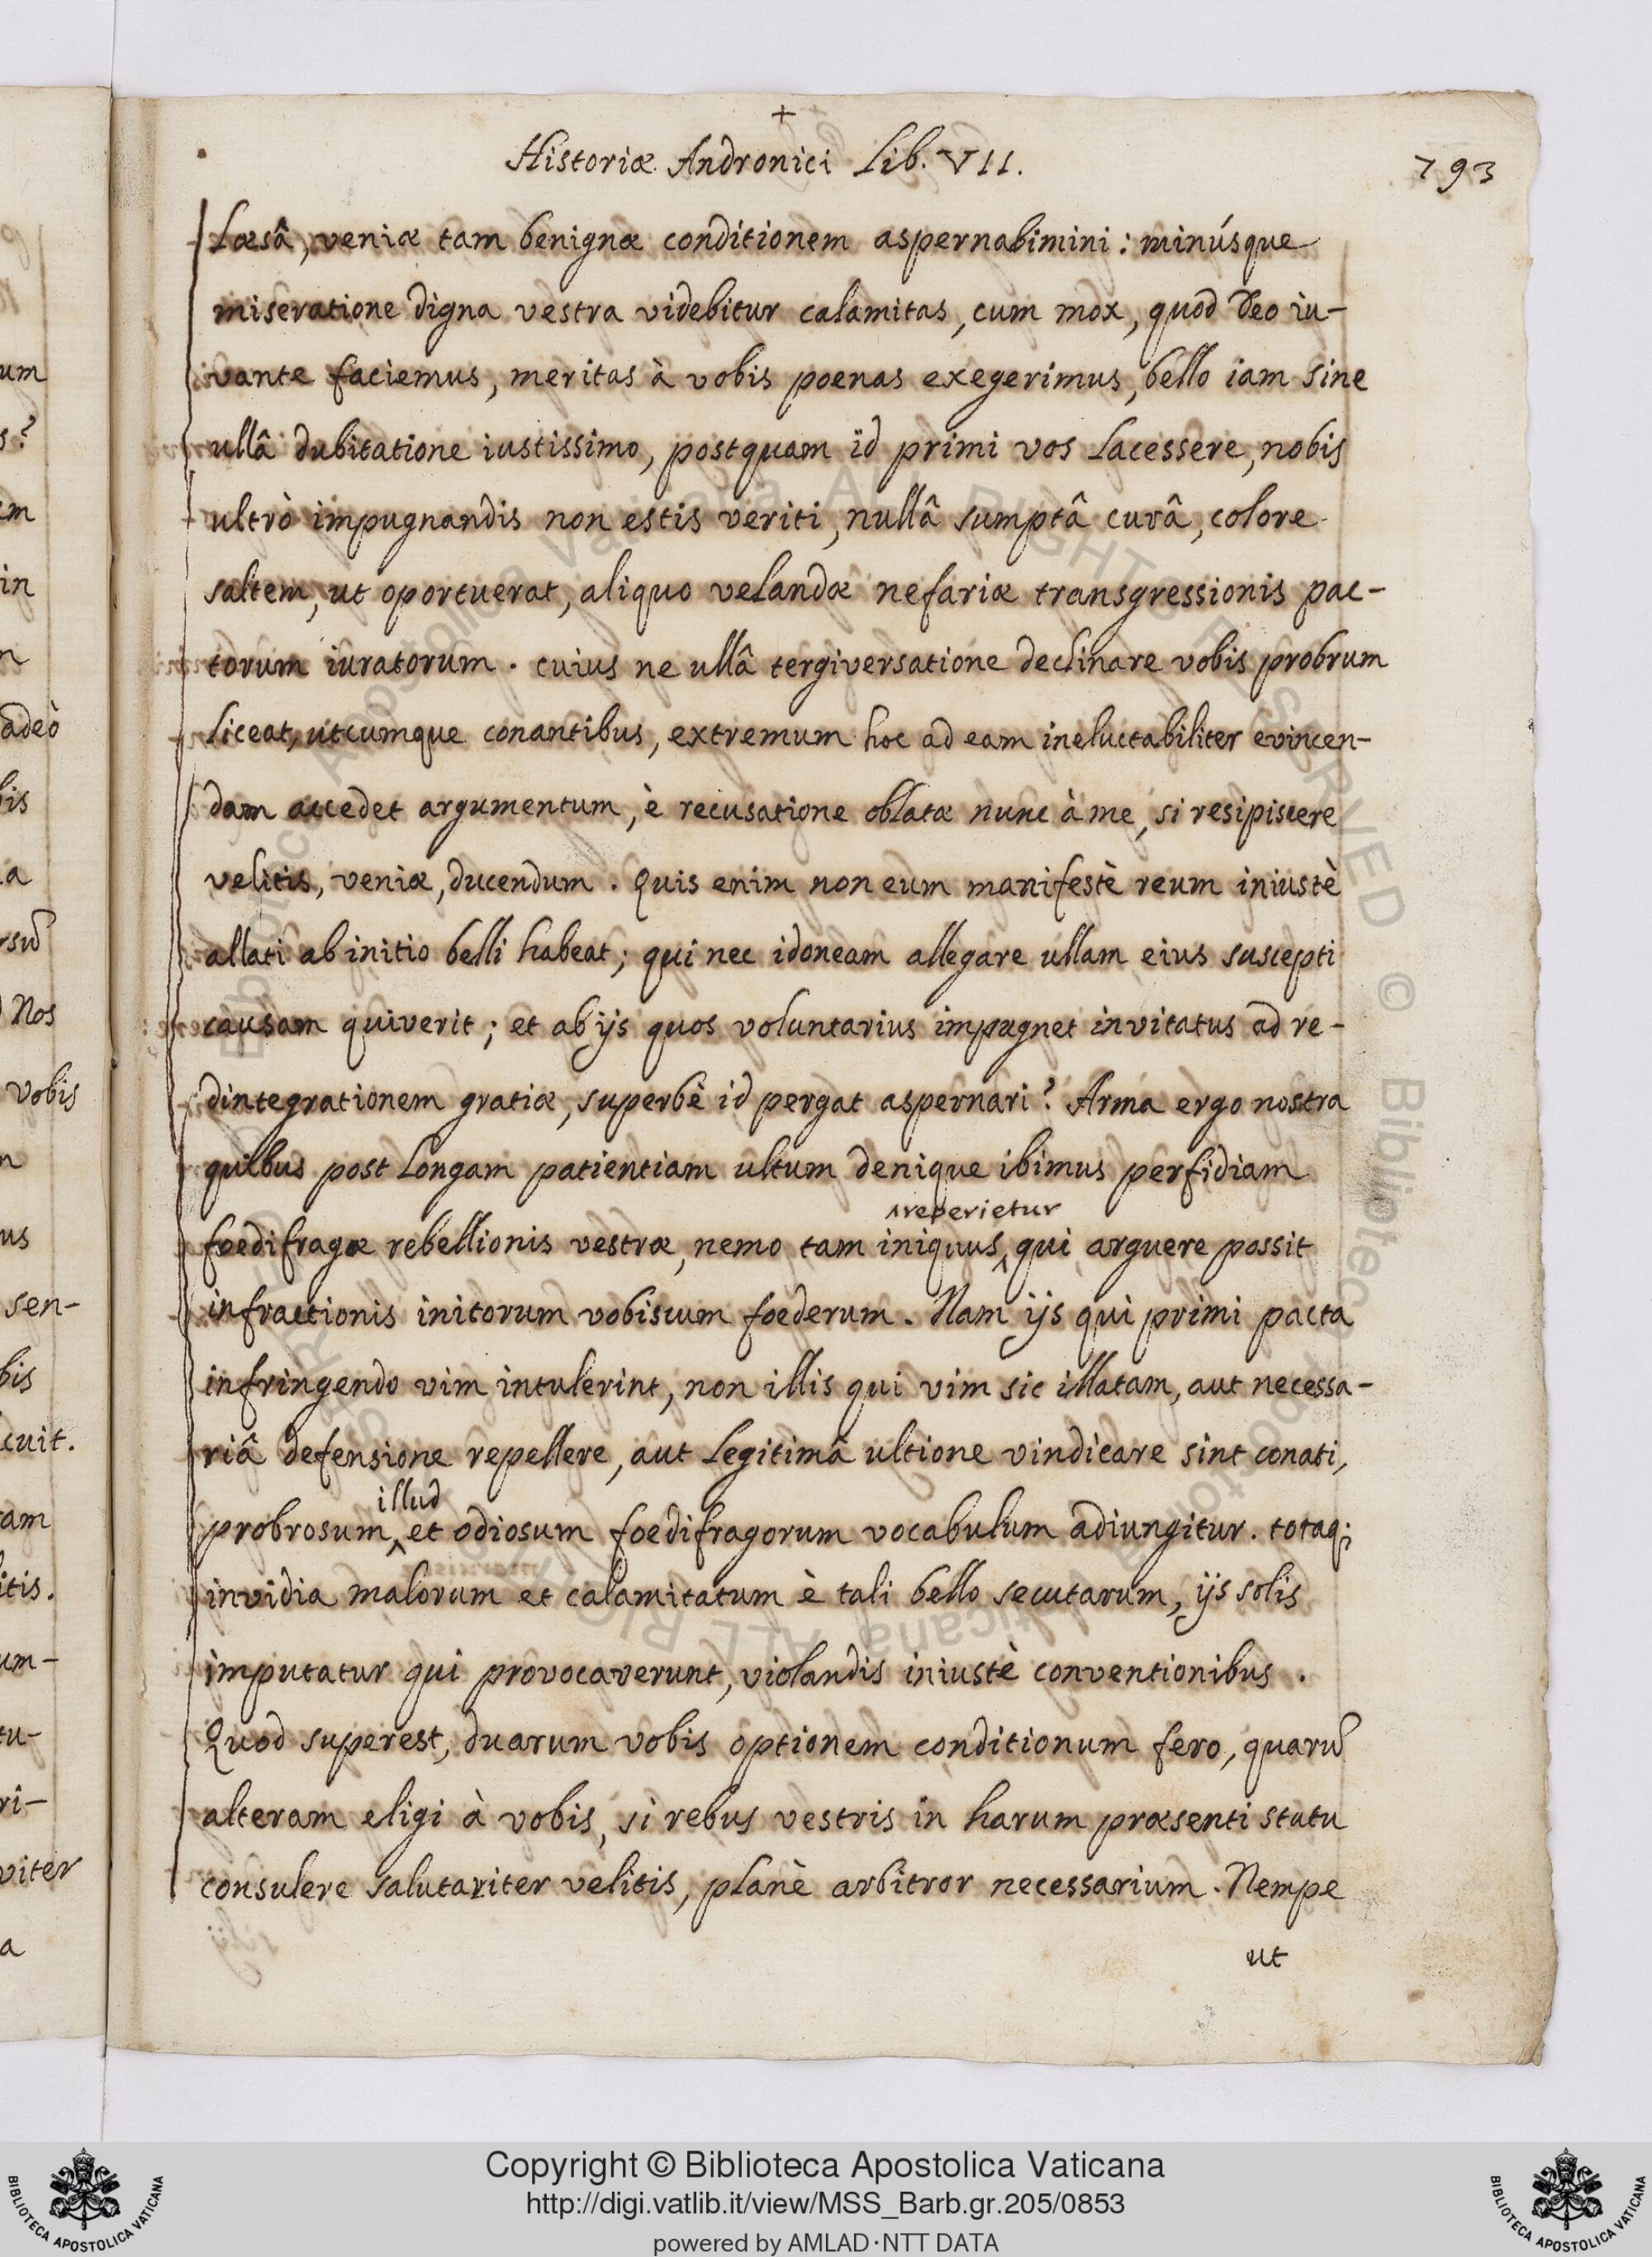 +
Historiæ Andronici Lib. VII.
793
Læsâ, veniæ tam benignæ conditionem aspernabimini: minúsque
miseratione digna vestra videbitur calamitas, cum mox, quod Deo iu-
vante faciemus, meritas à vobis poenas exegerimus, bello iam sine
ullâ dubitatione iustissimo, postquam id primi vos lacessere, nobis
ultrò impugnandis non estis veriti, nullâ sumptâ curâ, colore
saltem, ut oportuerat, aliquo velandæ nefariæ transgressionis pac-
torum iuratorum. cuius ne ullâ tergiversatione declinare vobis probrum
liceat, utcumque conantibus, extremum hoc ad eam ineluctabiliter evincen-
dam accedet argumentum, è recusatione oblatæ nunc à me, si resipiscere
velitis, veniæ, ducendum. Quis enim non eum manifestè reum iniustè
allati ab initio belli habeat; qui nec idoneam allegare ullam eius suscepti
causam quiverit; et ab ijs quos voluntarius impugnet invitatus ad re-
dintegrationem gratiæ, superbè id pergat aspernari? Arma ergo nostra
quibus post longam patientiam ultum denique ibimus perfidiam
reperietur
foedifragæ rebellionis vestræ, nemo tam iniquus‸ qui arguere possit
infractionis initorum vobiscum foederum. Nam ijs qui primi pacta
infringendo vim intulerint, non illis qui vim sic illatam, aut necessa-
riâ defensione repellere, aut legitimâ ultione vindicare sint conati,
illud
probrosum‸ et odiosum foedifragorum vocabulum adiungitur. totaq;
invidia malorum et calamitatum è tali bello secutarum, ijs solis
imputatur qui provocaverunt, violandis iniustè conventionibus.
Quod superest, duarum vobis optionem conditionum fero, quarũ
alteram eligi à vobis, si rebus vestris in harum præsenti statu
consulere salutariter velitis, planè arbitror necessarium. Nempe
ut
um
s?
em
in
n
adeò
bis
a
rsũ
Nos
vobis
n
us
sen-
bis
cuit.
tam
itis.
um-
tu-
ri-
viter
a
Copyright © Biblioteca Apostolica Vaticana
http://digi.vatlib.it/view/MSS_Barb.gr.205/0853
powered by AMLAD·NTT DATA
BIBLIOTECA APOSTOLICA VATICANA
BIBLIOTECA APOSTOLICA VATICANA